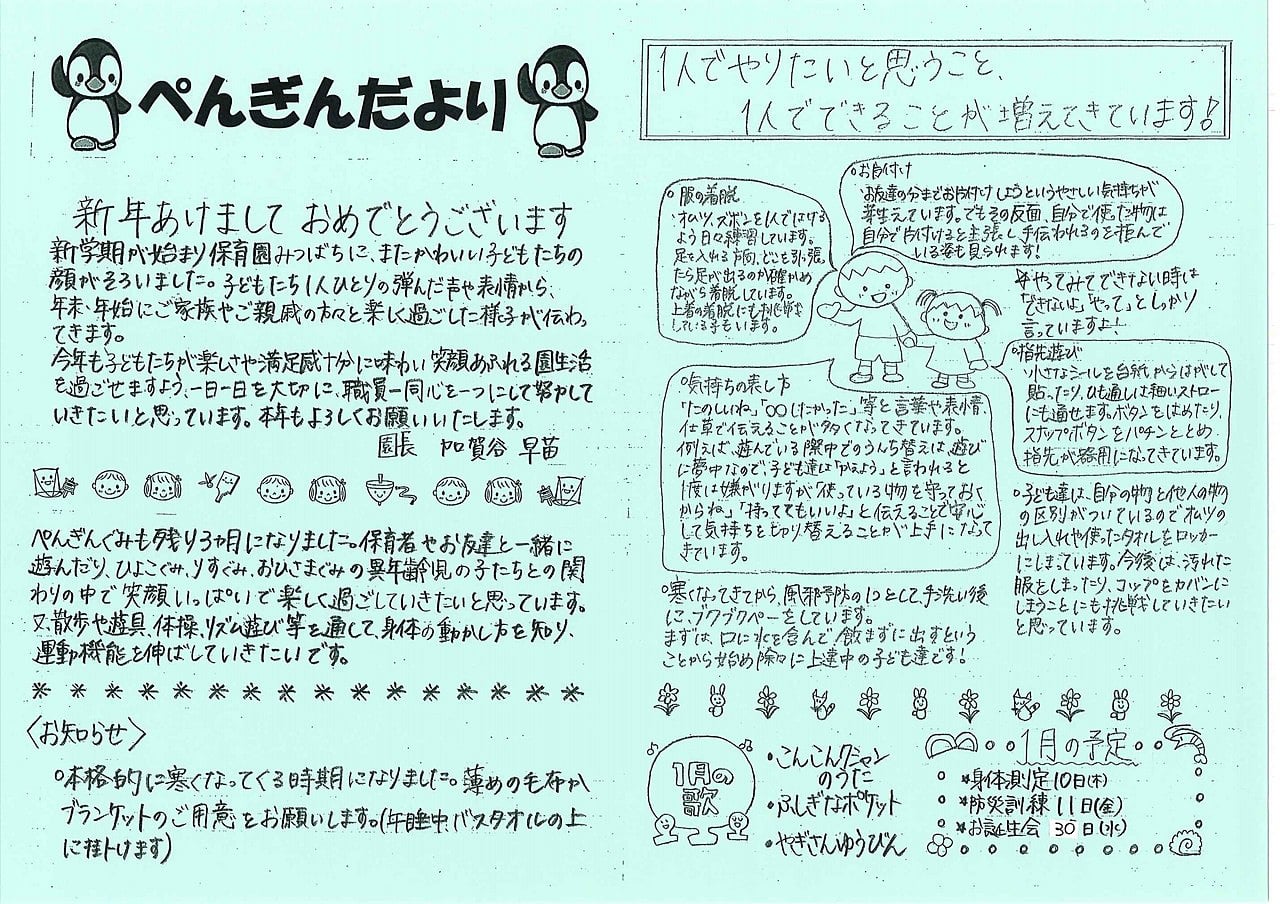 ぺんぎんだより
新年あけまして おめでとうございます
新学期が始まり保育園みつばちに、またかわいい子どもたちの
顔がそろいました。子どもたち1人ひとりの弾んだ声や表情から、
年末・年始にご家族やご親戚の方々と楽しく過ごした様子が伝わっ
てきます。
今年も子どもたちが楽しさや満足感十分に味わい笑顔あふれる園生活
を過ごせますよう、一日一日を大切に、職員一同心を一つにして努力して
いきたいと思っています。本年もよろしくお願いいたします。
園長 加賀谷 早苗
ぺんぎんぐみも残り3ヵ月になりました。保育者やお友達と一緒に
遊んだり、ひよこぐみ、りすぐみ、おひさまぐみの異年齢児の子たちとの関
わりの中で笑顔いっぱいで楽しく過ごしていきたいと思っています。
又、散歩や遊具、体操、リズム遊び等を通して、身体の動かし方を知り、
運動機能を伸ばしていきたいです。
〈お知らせ〉
○本格的に寒くなってくる時期になりました。薄めの毛布か
ブランケットのご用意をお願いします。(午睡中、バスタオルの上
に掛けます)
1人でやりたいと思うこと、
1人でできることが増えてきています!
○服の着脱
・オムツ、ズボンを1人ではける
よう日々練習しています。
足を入れる方向、どこを引っ張っ
たら足が出るのか確かめ
ながら着脱しています。
上着の着脱にも挑戦
している子もいます。
○お片付け
お友達の分までお片付けしようというやさしい気持ちが
芽生えています。でもその反面、自分で使った物は
自分で片付けると主張し、手伝われるのを拒んで
いる姿も見られます!
☆やってみてできない時は
「できないよ」「やって」としっかり
言っていますよ!
○指先遊び
小さなシールを台紙からはがして
貼ったり、ひも通しは細いストロー
にも通せます。ボタンをはめたり、
スナップボタンをパチンととめ
指先が器用になってきています。
○気持ちの表し方
「たのしいね」「○○したかった」等と言葉や表情、
仕草で伝えることが多くなってきています。
例えば、遊んでいる際中でのうんち替えは、遊び
に夢中なので、子ども達は「かえよう」と言われると
1度は嫌がりますが「使っている物を守っておく
からね」「持っててもいいよ」と伝えることで安心
して気持ちを切り替えることが上手になって
きています。
○子ども達は、自分の物と他人の物
の区別がついているのでオムツの
出し入れや使ったタオルをロッカー
にしまっています。今後は、汚れた
服をしまったり、コップをカバンに
しまうことにも挑戦していきたい
と思っています。
○寒くなってきてから、風邪予防の1つとして、手洗い後
に、ブクブクペーをしています。
まずは、口に水を含んで、飲まずに出すという
ことから始め除々に上達中の子ども達です!
1月の
歌
・こんこんクシャン
のうた
・ふしぎなポケット
・やぎさんゆうびん
1月の予定
★身体測定10日(木)
★防災訓練11日(金)
★お誕生会 30日(水)